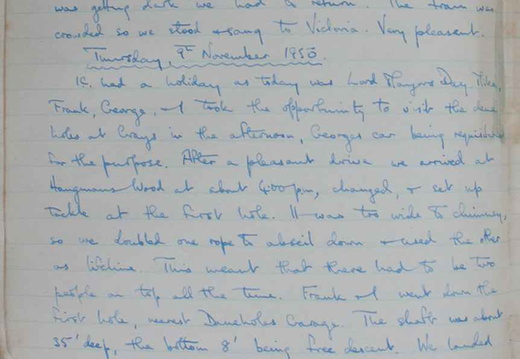 was getting dark we had a return. The train was
crowded so we stood & sang to Victoria. Very pleasant.
Thursday, 9th November 1950.
IC. had a holiday as today was Lord Mayors Day. Mike,
Frank, George, & I took the opportunity to visit the dene
holes at Grays in the afternoon, Georges car being requisitioned
for the purpose. After a pleasant drive we arrived at
Hangmans Wood at about 4.00pm, changed, & set up
tackle at the first hole. It was too wide to chimney,
so we doubled one rope to abseil down & used the other
as lifeline. This meant that there had to be two
people on top all the time. Frank & I went down the
first hole, nearest Daneholes Garage. The shaft was about
35' deep, the bottom 8' being free descent. We landed